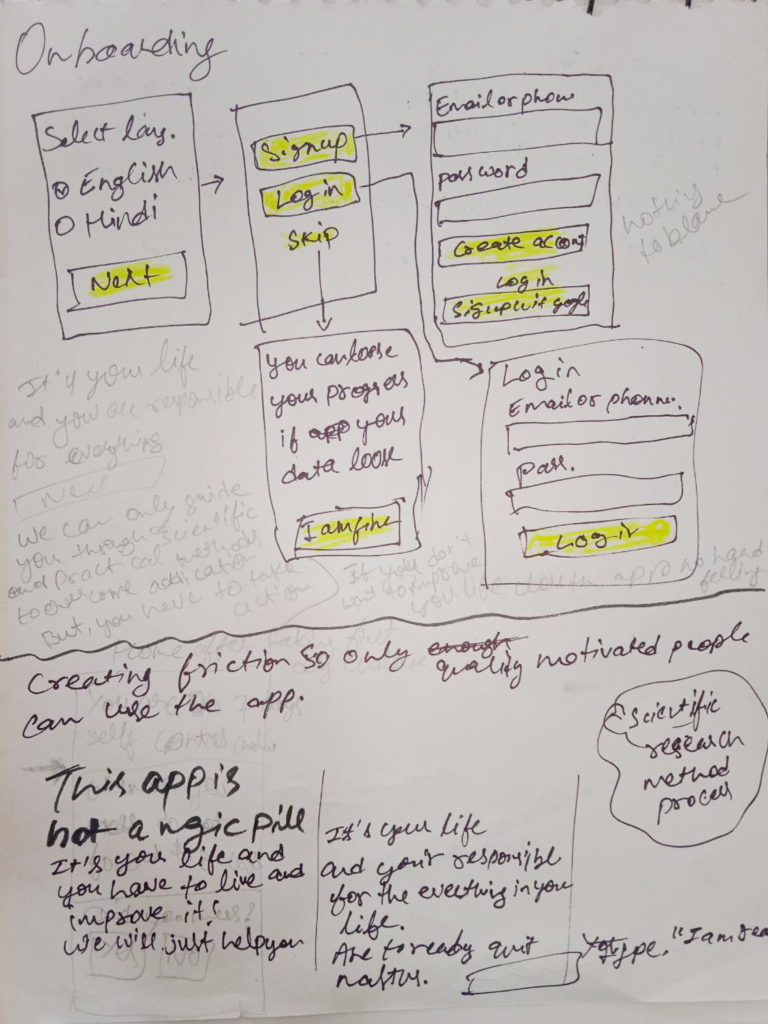 Onboarding
Select lang.
English
Hindi
Next
Signup
Login
Skip
Email or phone
password
Create account
Login
Signup wit google
nothing
to blame
You can loose
your progress
if app your
data loose
I am fine
Login
Email or phonne.
Pass.
Login
It's your life
and you are responsible
for everything
Next
We can only guide
you through scientific
and practical methods
to overcome addication
But, you have to take
action
If you don't
want to improve
you life
app no hard
feeling
Creating friction so only enough quality motivated people
can use the app.
Scientific
research
method
process
This app is
not a mgic pill
It's your life and
you have to live and
improve it!
We will just help you
It's your life
and your responsible
for the everthing in you
life.
Are to ready quit
Type. "I am rea